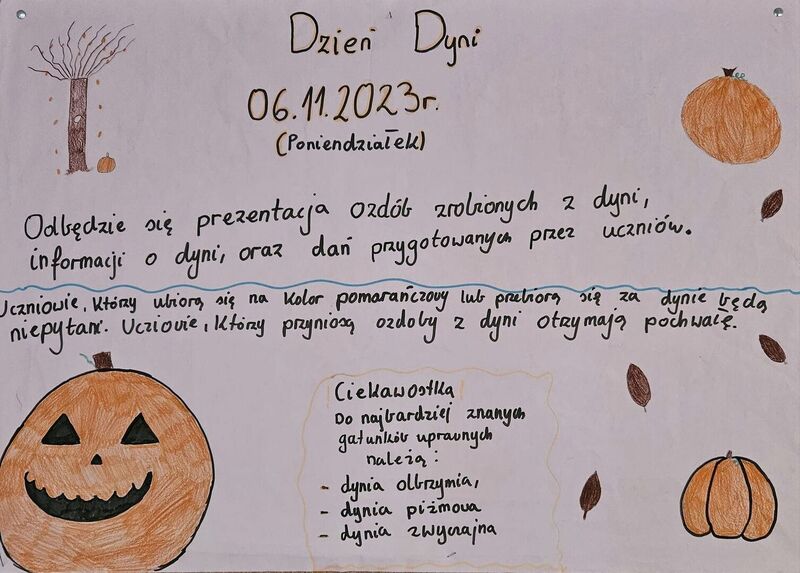 Dzień Dyni
06.11.2023r.
(Poniendziałek)
Odbędzie się prezentacja ozdób zrobionych z dyni,
informacji o dyni, oraz dań przygotowanych przez uczniów.
Uczniowie, którzy ubiorą się na kolor pomarańczowy lub przebiorą się za dynie będą
niepytani. Ucziowie, którzy przyniosą ozdoby z dyni otrzymają pochwałę.
Ciekawostka
Do najbardziej znanych
gatunków uprawnych
należą:
- dynia olbrzymia,
- dynia piżmowa
- dynia zwyczajna